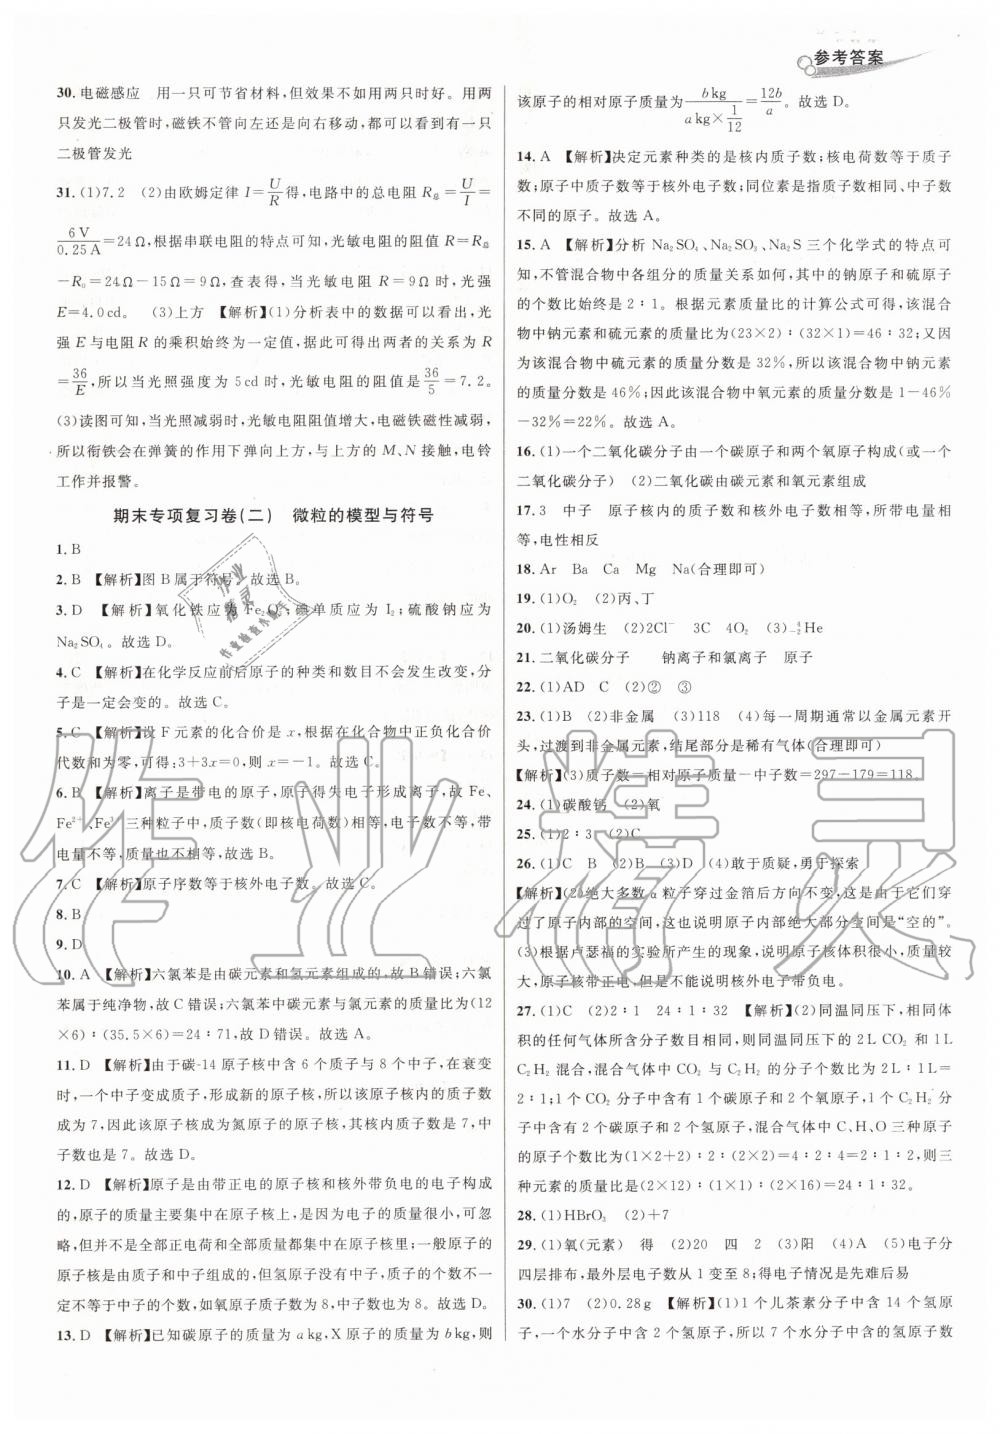 参考答案
30. 电磁感应　用一只可节省材料,但效果不如用两只时好。用两
只发光二极管时,磁铁不管向左还是向右移动,都可以看到有一只
二极管发光
31. (1)7.2　(2)由欧姆定律 I=U/R得,电路中的总电阻 R总=U/I=
6 V/0.25 A=24Ω,根据串联电阻的特点可知,光敏电阻的阻值 R=R总
-R₀=24Ω-15Ω=9Ω,查表知,当光敏电阻 R=9Ω时,光强
E=4.0cd。　(3)上方　【解析】(1)分析表中的数据可以看出,光
强 E 与电阻 R 的乘积始终为一定值,据此可求出两者的关系为 R
=36/E,所以当光照强度为 5 cd 时,光敏电阻的阻值是36/5=7.2。
(3)读图可知,当光照减弱时,光敏电阻阻值增大,电磁铁磁性减弱,
所以衔铁会在弹簧的作用下弹向上方,与上方的 M、N 接触,电铃
工作并报警。
期末专项复习卷(二)　微粒的模型与符号
1. B
2. B　【解析】图 B 属于符号。故选 B。
3. D　【解析】氧化铁应为 Fe₂O₃;碘单质应为 I₂;硫酸钠应为
Na₂SO₄。故选 D。
4. C　【解析】在化学反应前后原子的种类和数目不会变化,分
子是一定会变的。故选 C。
5. C　【解析】设 F 元素的化合价是 x,根据在化合物中正负化合价
代数和为零,可得:3+3x=0,则 x=-1。故选 C。
6. B　【解析】离子是带电的原子,原子得失电子形成离子,故 Fe、
Fe²⁺、Fe³⁺三种粒子中,质子数(即核电荷数)相等,电子数不等,带
电量不等,质量也不相等,故选 B。
7. C　【解析】原子序数等于核外电子数。故选 C。
8. B
9. D
10. A　【解析】六氯苯是由碳元素和氯元素组成的,故 B 错误;六氯
苯属于纯净物,故 C 错误;六氯苯中碳元素与氯元素的质量比为(12
×6)∶(35.5×6)=24∶71,故 D 错误。故选 A。
11. D　【解析】由于碳-14 原子核中含 6 个质子与 8 个中子,在衰变
时,一个中子变成质子,形成新的原子核,所以该原子核内的质子数
成为 7,因此该原子核成为氮原子的原子核,其核内质子数是 7,中
子数也是 7。故选 D。
12. D　【解析】原子是由带正电的原子核和核外带负电的电子构成
的,原子的质量主要集中在原子核上,是因为电子的质量很小,可忽
略,但并不是全部正电荷和全部质量都集中在原子核里;一般原子的
原子核是由质子和中子组成的,但氢原子没有中子;原子核内质子数不一
定不等于中子的个数,如氧原子质子数为 8,中子数也为 8。故选 D。
13. D　【解析】已知碳原子的质量为 a kg,X 原子的质量为 b kg,则
该原子的相对原子质量为b kg/(a kg×1/12)=12b/a。故选 D。
14. A　【解析】决定元素种类的是核内质子数;核电荷数等于质子
数;原子中质子数等于核外电子数;同位素是指质子数相同、中子数
不同的原子。故选 A。
15. A　【解析】分析 Na₂SO₄、Na₂SO₃、Na₂S 三个化学式的特点可
知,不管混合物中各组分的质量关系如何,其中的钠原子和硫原子
的个数比始终是 2∶1。根据元素质量比的计算公式可得,该混合
物中钠元素和硫元素的质量比为(23×2)∶(32×1)=46∶32;又因
为该混合物中硫元素的质量分数是 32%,所以该混合物中钠元素
的质量分数是 46%;因此该混合物中氧元素的质量分数是 1-46%
-32%=22%。故选 A。
16. (1)一个二氧化碳分子由一个碳原子和两个氧原子构成(或一个
二氧化碳分子)　(2)二氧化碳由碳元素和氧元素组成
17. 3　中子　原子核内的质子数和核外电子数相等,所带电量相
等,电性相反
18. Ar　Ba　Ca　Mg　Na(合理即可)
19. (1)O₂　(2)丙、丁
20. (1)汤姆生　(2)2Cl⁻　3C　4O₂　(3)₋₂⁴He
21. 二氧化碳分子　　钠离子和氯离子　原子
22. (1)AD　C　(2)②　③
23. (1)B　(2)非金属　(3)118　(4)每一周期通常以金属元素开
头,过渡到非金属元素,结尾部分是稀有气体(合理即可)
【解析】(3)质子数=相对原子质量-中子数=297-179=118。
24. (1)碳酸钙　(2)氧
25. (1)2∶3　(2)C
26. (1)C　B　(2)B　(3)B　(4)敢于质疑,勇于探索
【解析】(2)绝大多数 α 粒子穿过金箔后方向不变,这是由于它们穿
过了原子内部的空间,这也说明原子内部绝大部分空间是“空的”。
(3)根据卢瑟福的实验所产生的现象,说明原子核体积很小、质量较
大,原子核带正电,但是不能说明核外电子带负电。
27. (1)C　(2)2∶1　24∶1∶32　【解析】(2)同温同压下,相同体
积的任何气体所含分子数目相同,则同温同压下的 2L CO₂ 和 1L
C₂H₂ 混合,混合气体中 CO₂ 与 C₂H₂ 的分子个数之比=2L∶1L=
2∶1;1 个 CO₂ 分子中含有 1 个碳原子和 2 个氧原子,1 个 C₂H₂ 分
子中含有 2 个碳原子和 2 个氢原子,混合气体中 C、H、O 三种原子
的原子个数比为(1×2+2)∶2∶(2×2)=4∶2∶4=2∶1∶2,则三
种元素的质量比是(2×12)∶(1×1)∶(2×16)=24∶1∶32。
28. (1)HBrO₃　(2)+7
29. (1)氧(元素)　得　(2)20　四　2　(3)阳　(4)A　(5)电子分
四层排布,最外层电子数从 1 变至 8;得电子情况是先难后易
30. (1)7　(2)0.28 g　【解析】(1)1 个儿茶素分子中含 14 个氢原
子,一个水分子中含 2 个氢原子,所以 7 个水分子中所含的氢原子数